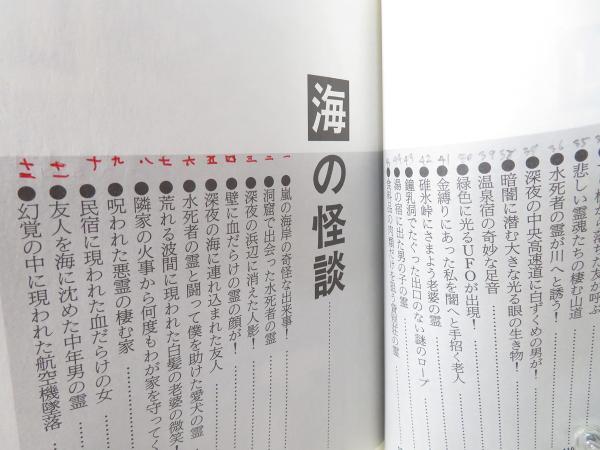 35 ●悲しい霊魂たちの棲む山道
36 ●水死者の霊が川へと誘う!
37 ●深夜の中央高速道に白ずくめの男が!
38 ●暗闇に潜む大きな光る眼の生き物!
39 ●温泉宿の奇妙な足音
40 ●緑色に光るUFOが出現!
41 ●金縛りにあった私を闇へと手招く老人
42 ●碓氷峠にさまよう老婆の霊
43 ●鐘乳洞でたぐった出口のない謎のロープ
44 ●湯の宿に出た男の子の霊
海の怪談
一 ●嵐の海岸の奇怪な出来事!
二 ●洞窟で出会った水死者の霊
三 ●深夜の浜辺に消えた人影!
四 ●壁に血だらけの霊の顔が!
五 ●深夜の海に連れ込まれた友人
六 ●水死者の霊と闘って僕を助けた愛犬の霊
七 ●荒れる波間に現われた白髪の老婆の微笑!
八 ●隣家の火事から何度もわが家を守ってく
九 ●呪われた悪霊の棲む家
十 ●民宿に現われた血だらけの女
十一 ●友人を海に沈めた中年男の霊
十二 ●幻覚の中に現われた航空機墜落